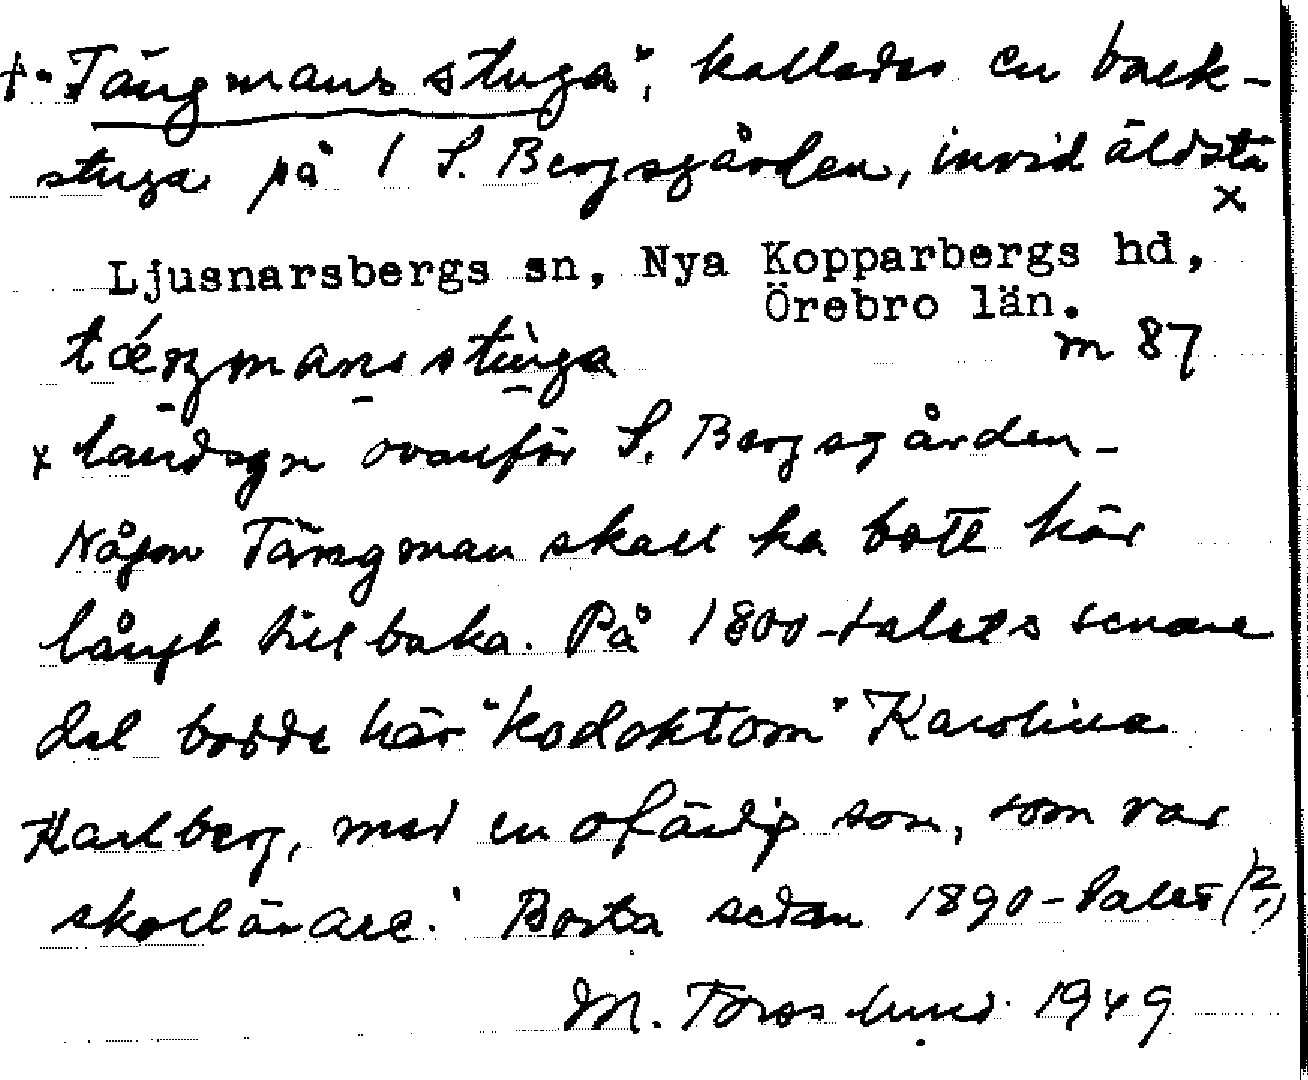 †"Tängmans stuga", kallades en back-
stuga på 1 S. Bergsgården, invid äldsta
x
Ljusnarsbergs sn, Nya Kopparbergs hd,
Örebro län.
m 87
tæŋmans stuga
x landsgn ovanför S. Bergsgården -
Någon Tängman skall ha bott här
långt tillbaka. På 1800-talets senare
del bodde här "kodoktorn" Karolina
Karlberg, med en ofärdig son, som var
skollärare. Borta sedan 1890-talet (?)
M. Toroslund 1949